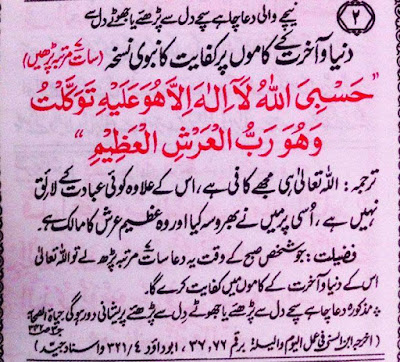 ۲
نیچے والی دعا چاہے سچے دل سے پڑھئے یا جھوٹے دل سے
دنیا و آخرت کے کاموں پر کفایت کا نبوی نسخہ (سات مرتبہ پڑھیں)
"حَسْبِیَ اللهُ لَآ اِلٰهَ اِلَّا هُوَ عَلَیْهِ تَوَکَّلْتُ
وَهُوَ رَبُّ الْعَرْشِ الْعَظِیْمِ"
ترجمہ: اللہ تعالیٰ ہی مجھے کافی ہے، اس کے علاوہ کوئی عبادت کے لائق
نہیں ہے، اُسی پر میں نے بھروسہ کیا اور وہ عظیم عرش کا مالک ہے۔
فضیلت: جو شخص صبح کے وقت یہ دعا سات مرتبہ پڑھ لے تو اللہ تعالیٰ
اس کے دنیا و آخرت کے کاموں میں کفایت کرے گا۔
مذکورہ دعا چاہے سچے دل سے پڑھئے یا جھوٹے دل سے پڑھئے پریشانی دور ہوگی حیاۃ الصحابۃ
(اخرجہ ابن السنی فی عمل الیوم واللیلۃ برقم ۳۷،۷۷، ابوداؤد ۳۲۱/۴ واسنادہ جید)